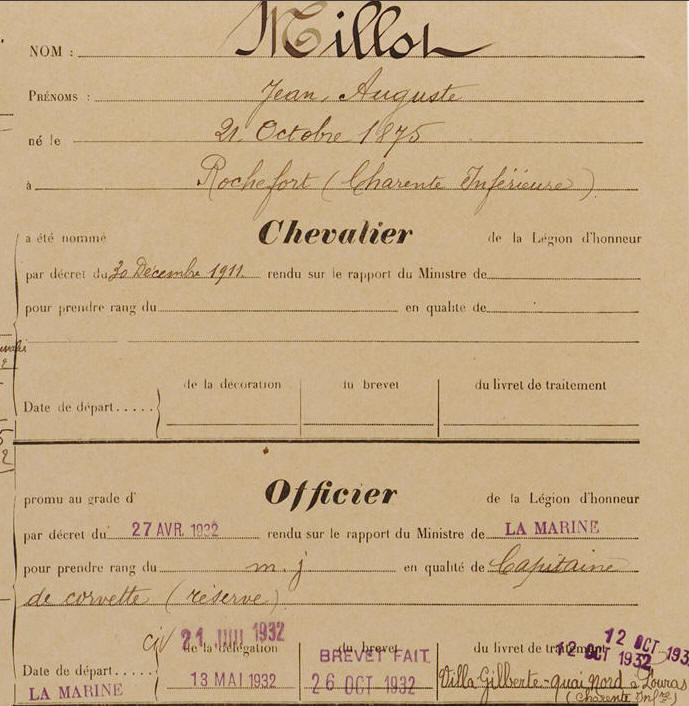 NOM : Millot
PRÉNOMS : Jean, Auguste
né le 21 Octobre 1875
à Rochefort (Charente Inférieure)
a été nommé Chevalier de la Légion d'honneur
par décret du 30 Décembre 1911. rendu sur le rapport du Ministre de
pour prendre rang du en qualité de
de la décoration du brevet du livret de traitement
Date de départ.....
promu au grade d' Officier de la Légion d'honneur
par décret du 27 AVR. 1932 rendu sur le rapport du Ministre de LA MARINE
pour prendre rang du m. j en qualité de Capitaine
de corvette (réserve)
21 JUIL 1932 12 OCT 193
de la délégation du brevet du livret de traitement
BREVET FAIT. 12 OCT 1932
Date de départ..... 13 MAI 1932 26 OCT 1932 Villa Gilberte - quai Nord à Fouras
LA MARINE (Charente Infre)